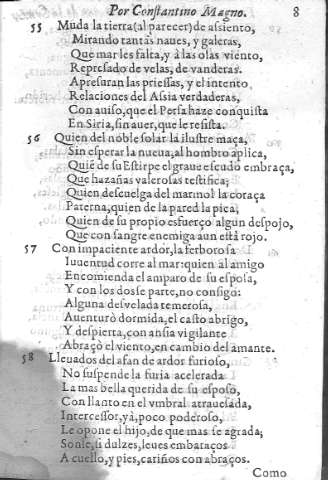 Por Conſtantino Magno. 8
55 Muda la tierra(al parecer)de aſsiento,
Mirando tantas naues, y galeras,
Que mar les falta, y à las olas viento,
Repreſado de velas, de vanderas.
Apreſuran las prieſſas, y el intento
Relaciones del Aſsia verdaderas,
Con auiſo, que el Perſa haze conquiſta
En Siria, sin auer, que le reſiſta.
56 Quien del noble ſolar la iluſtre maça,
Sin eſperar la nueua, al hombro aplica,
Quiē de ſu Eſtirpe el graue eſcudo embraça,
Que hazañas valeroſas teſtifica;
Quien deſcuelga del marmol la coraça
Paterna, quien de la pared la pica,
Quien de ſu propio esfuerço algun deſpojo,
Que con ſangre enemiga aun eſtà rojo.
57 Con impaciente ardor, la ferboroſa
Iuuentud corre al mar: quien al amigo
Encomienda el amparo de ſu eſpoſa,
Y con los doſſe parte, no conſigo:
Alguna deſvelada temeroſa,
Auenturò dormida, el caſto abrigo,
Y deſpierta, con anſia vigilante
Abraçò el viento, en cambio del amante.
58 Lleuados del afan de ardor furioſo,
No ſuſpende la furia acelerada
La mas bella querida de ſu eſpoſo,
Con llanto en el vmbral atraueſada,
Interceſſor, yà, poco poderoſo,
Le opone el hijo, de que mas ſe agrada;
Sonle, si dulzes, leues embaraços
A cuello, y pies, cariños con abraços.
Como